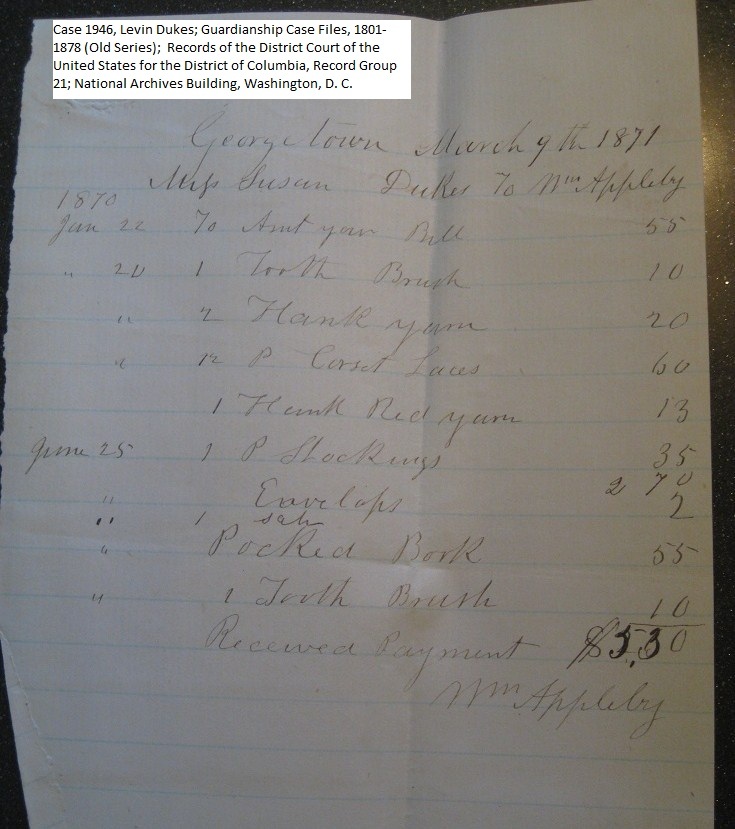 Case 1946, Levin Dukes; Guardianship Case Files, 1801-
1878 (Old Series); Records of the District Court of the
United States for the District of Columbia, Record Group
21; National Archives Building, Washington, D. C.
Georgetown March 9th 1871
Miss Susan Dukes To Wm Appleby
1870
Jan 22 To Amt your Bill 55
" 20 1 Tooth Brush 10
" 2 Hank yarn 20
" 12 P Corset Laces 60
1 Hank Red yarn 13
June 25 1 P Stockings 35
" Envelops 2
" 1 sash 2 70
" Pocked Book 55
" 1 Tooth Brush 10
Received Payment $5.30
Wm Appleby